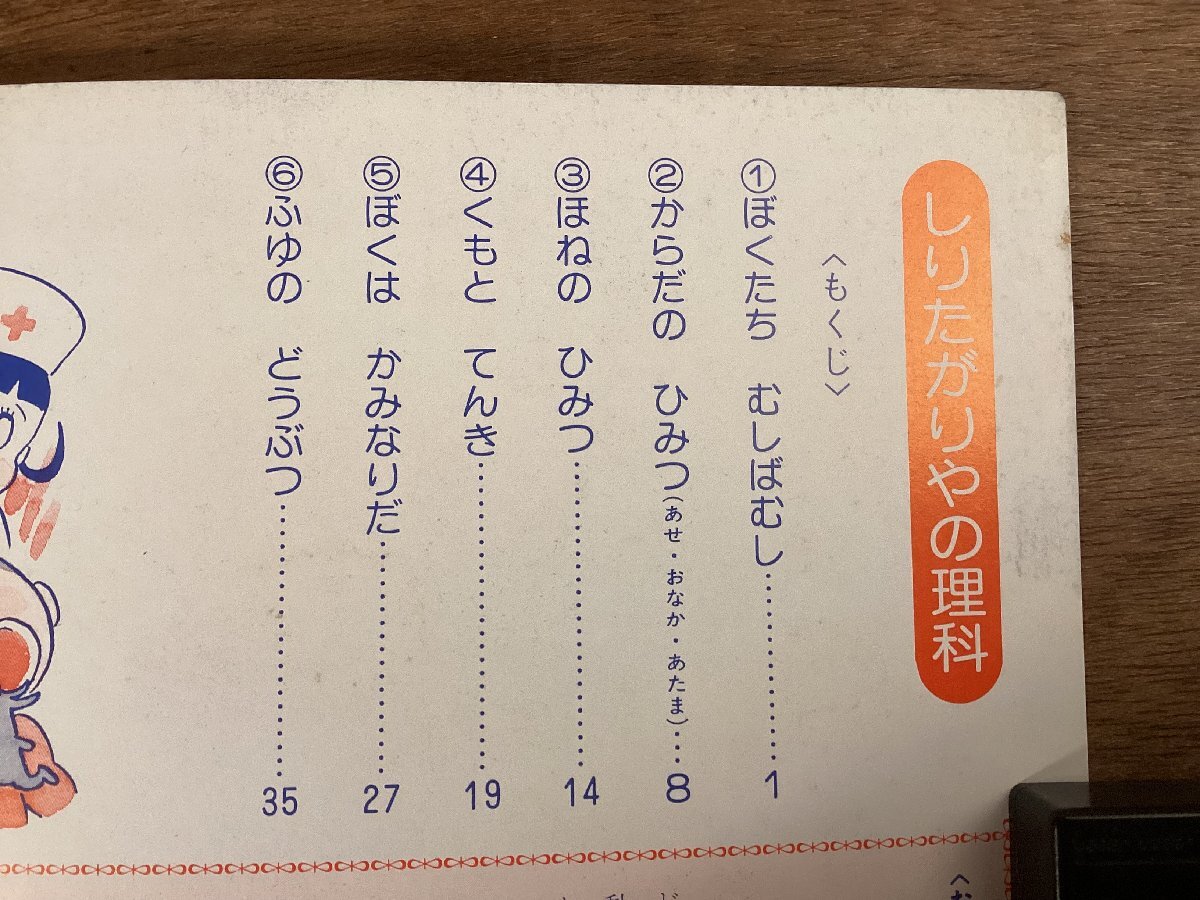 しりたがりやの理科
〈もくじ〉
①ぼくたち　むしばむし……………1
②からだの　ひみつ（あせ・おなか・あたま）…8
③ほねの　ひみつ……………………14
④くもと　てんき……………………19
⑤ぼくは　かみなりだ………………27
⑥ふゆの　どうぶつ…………………35